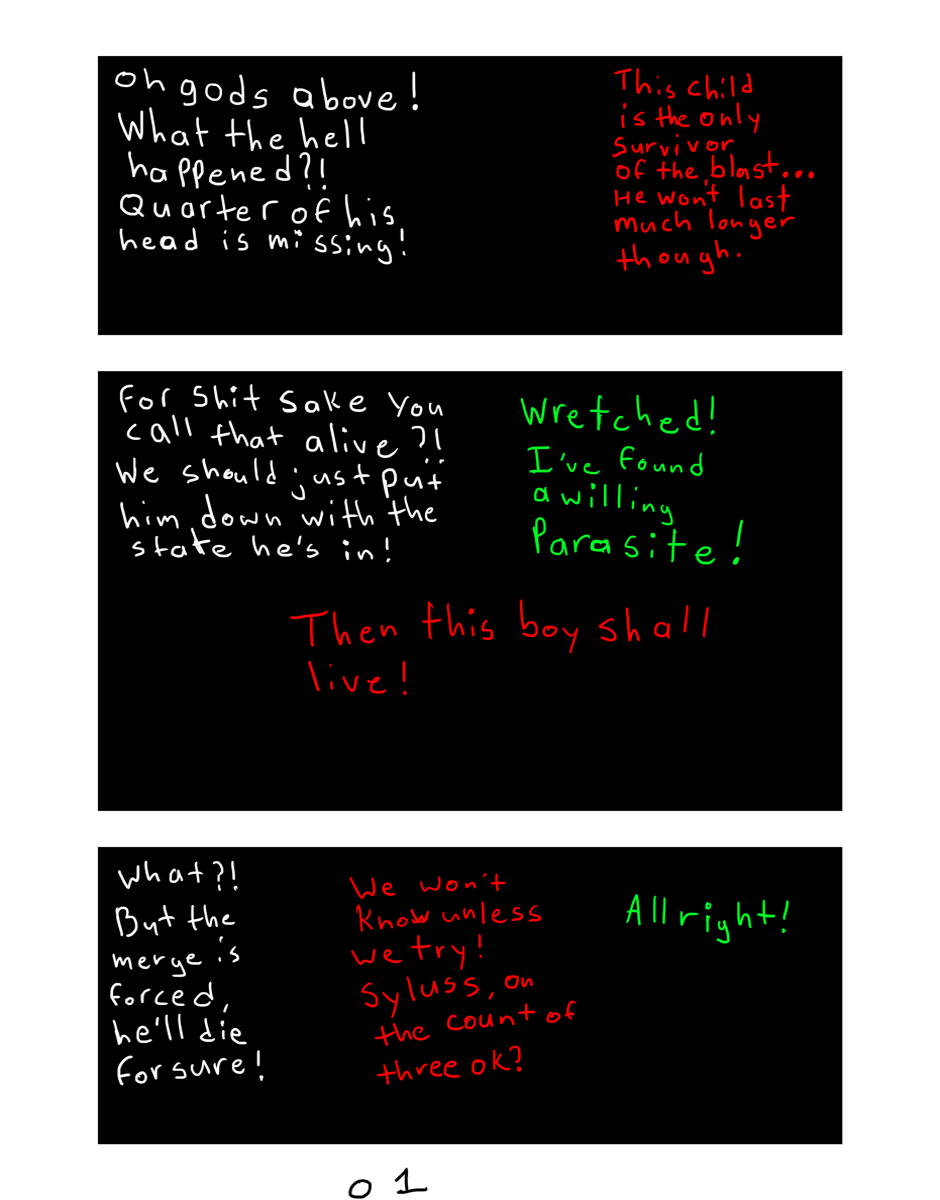 Oh gods above!
What the hell
happened?!
Quarter of his
head is missing!
This child
is the only
survivor
of the blast...
He won't last
much longer
though.
For shit sake you
call that alive?!
We should just put
him down with the
state he's in!
Wretched!
I've found
a willing
Parasite!
Then this boy shall
live!
What?!
But the
merge is
forced,
he'll die
for sure!
We won't
know unless
we try!
Syluss, on
the count of
three ok?
All right!
01